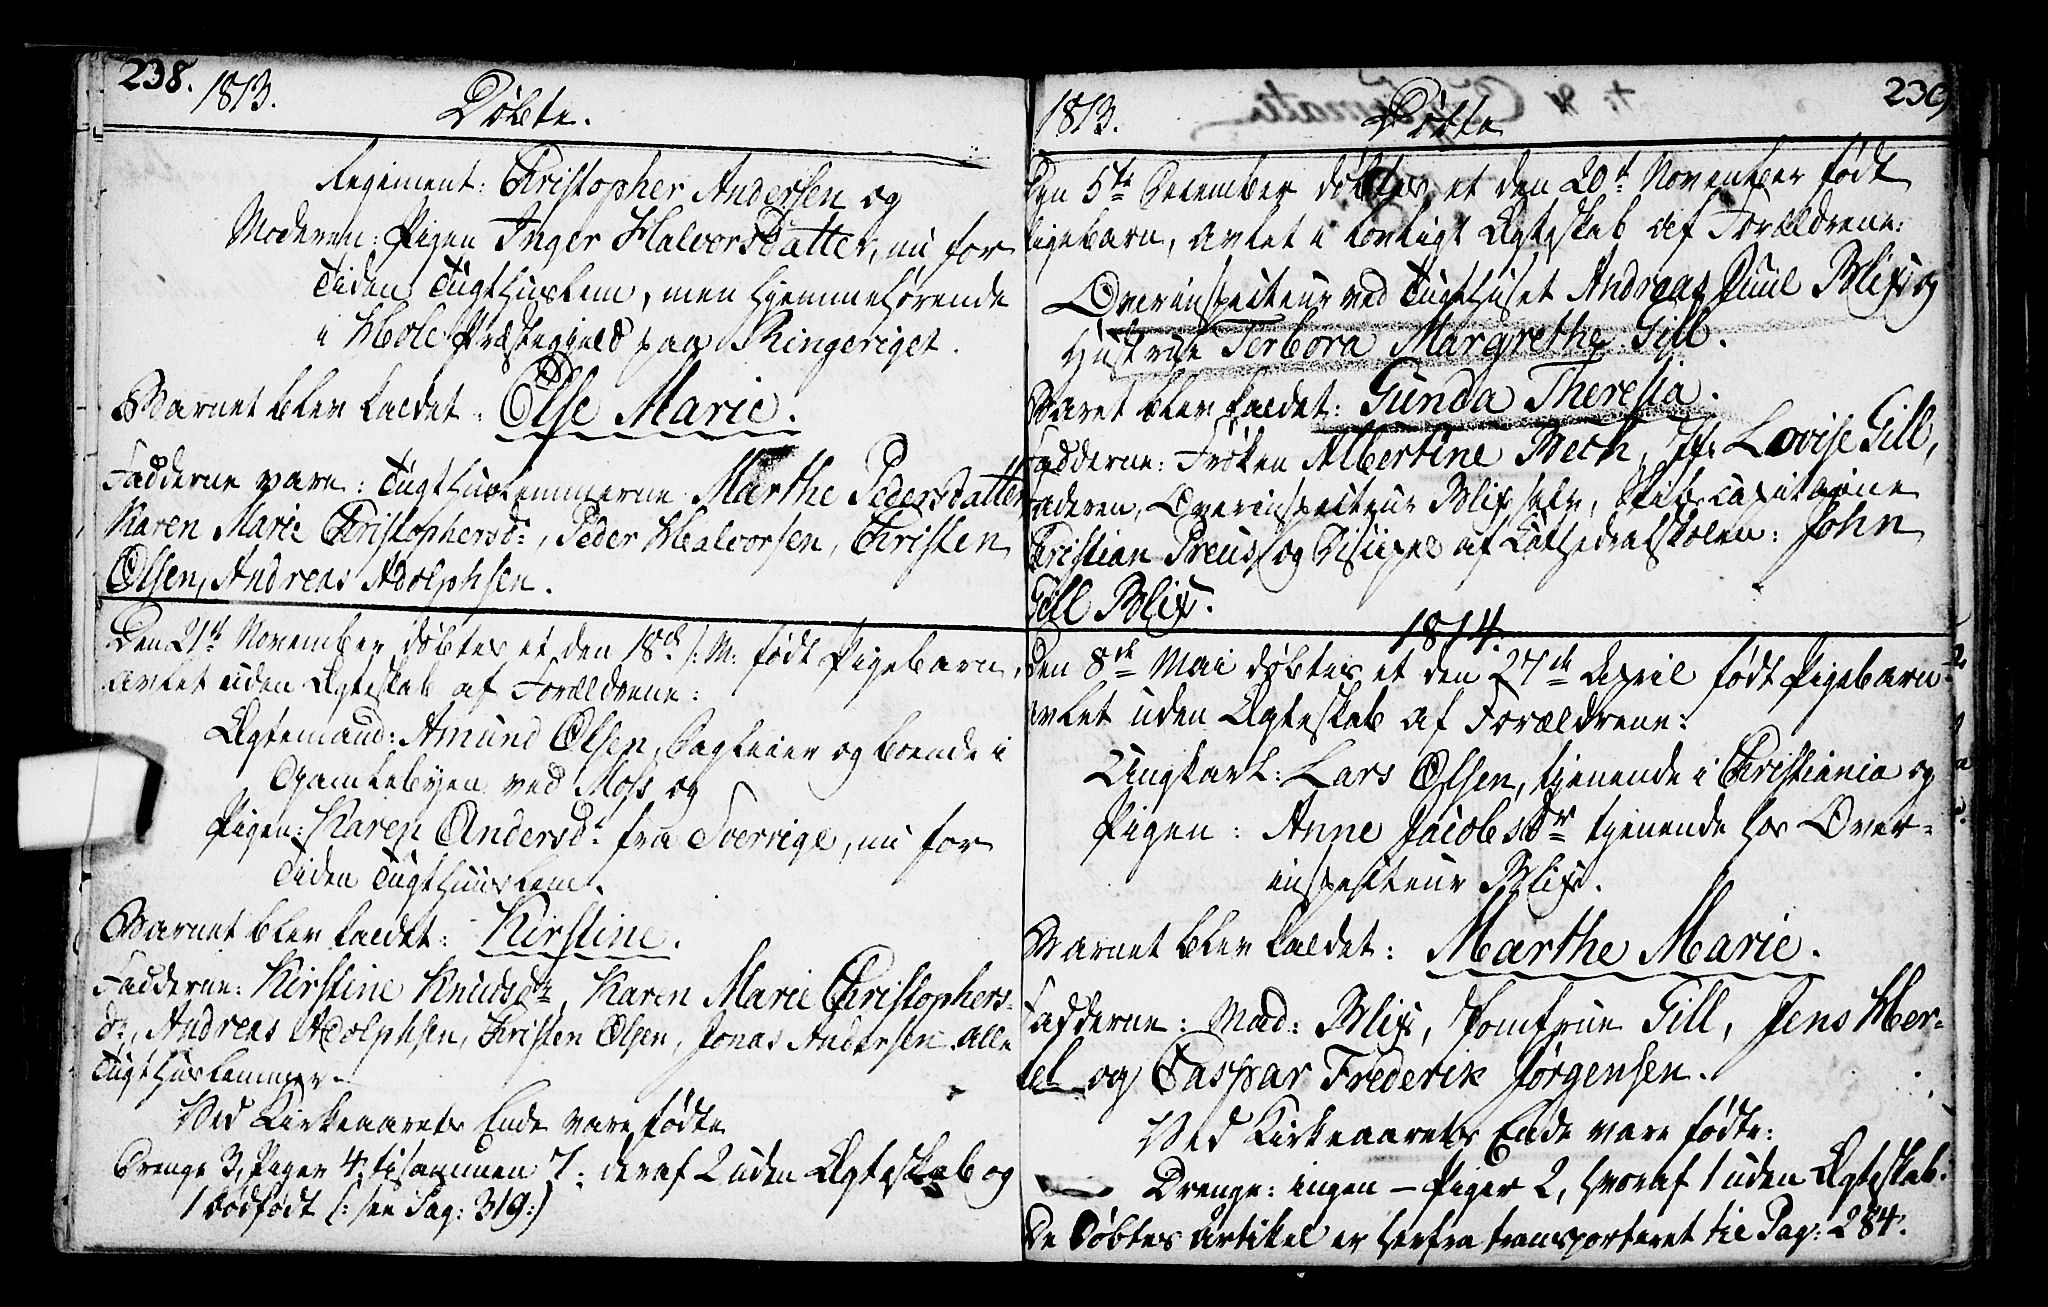 238.
1813.
Døbte.
Regiment: Christopher Andersen og
Moderen: Pigen Inger HalvorsDatter, nu for
Tiden TugtHuslem, men hjemmehørende
i Hole Præstegield paa Ringeriget.
Barnet blev kaldet: Else Marie.
Fadderne vare: Tugthuslemmerne Marthe Pedersdatter
Karen Marie Christophersdr, Peder Halvorsen, Christen
Olsen, Andreas Adolphsen.
Den 21de November døbtes et den 18de /: M: født Pigebarn,
avlet uden Ægteskab af Forældrene:
Ægtemand: Amund Olsen, boende i
Gamlebyen ved Moss og
Pigen: Karen Andersdr fra Sverrige, nu for
Tiden Tugthuuslem.
Barnet blev kaldet: Kirstine.
Fadderne: Kirstine Knudsdr, Karen Marie Christophers-
dr, Andreas Adolphsen, Christen Olsen, Jonas Andersen. Alle
Tugthuslemmer.
Ved Kirkeaarets Ende vare fødte
Drenge 3, Piger 4, tilsammen 7: deraf 2 uden Ægteskab og
1 dødfødt (: see Pag: 319:)
239
1813.
Døbte
Den 5te December døbtes et den 20d November født
Pigebarn, avlet i lovligt Ægteskab af Forældrene:
Overinspecteur ved Tugthuset Andreas Juul Blix og
Hustrue Torbora Margrethe Gill.
Barnet blev kaldet: Gunda Theresia.
Fadderne: Frøken Albertine Bech, Jfr. Lovise Gill,
Faderen, Overinspecteur Blix selv, Skibscapitaine
Christian Preus og Discipel af Cathedralskolen: John
Gill Blix.
1814.
Den 8de Mai døbtes et den 27de April født Pigebarn
avlet uden Ægteskab af Forældrene:
Ungkarl: Lars Olsen, tjenende i Christiania og
Pigen: Anne Jacobsdr tjenende hos Over-
inspecteur Blix.
Barnet blev kaldet: Marthe Marie.
Fadderne: Mad: Blix, Jomfrue Gill, Jens Her-
tel og Caspar Frederik Jørgensen.
Ved Kirkeaarets Ende vare fødte:
Drenge: ingen - Piger 2, hvoraf 1 uden Ægteskab.
De Døbtes Artikel er herfra transporteret til Pag: 284.